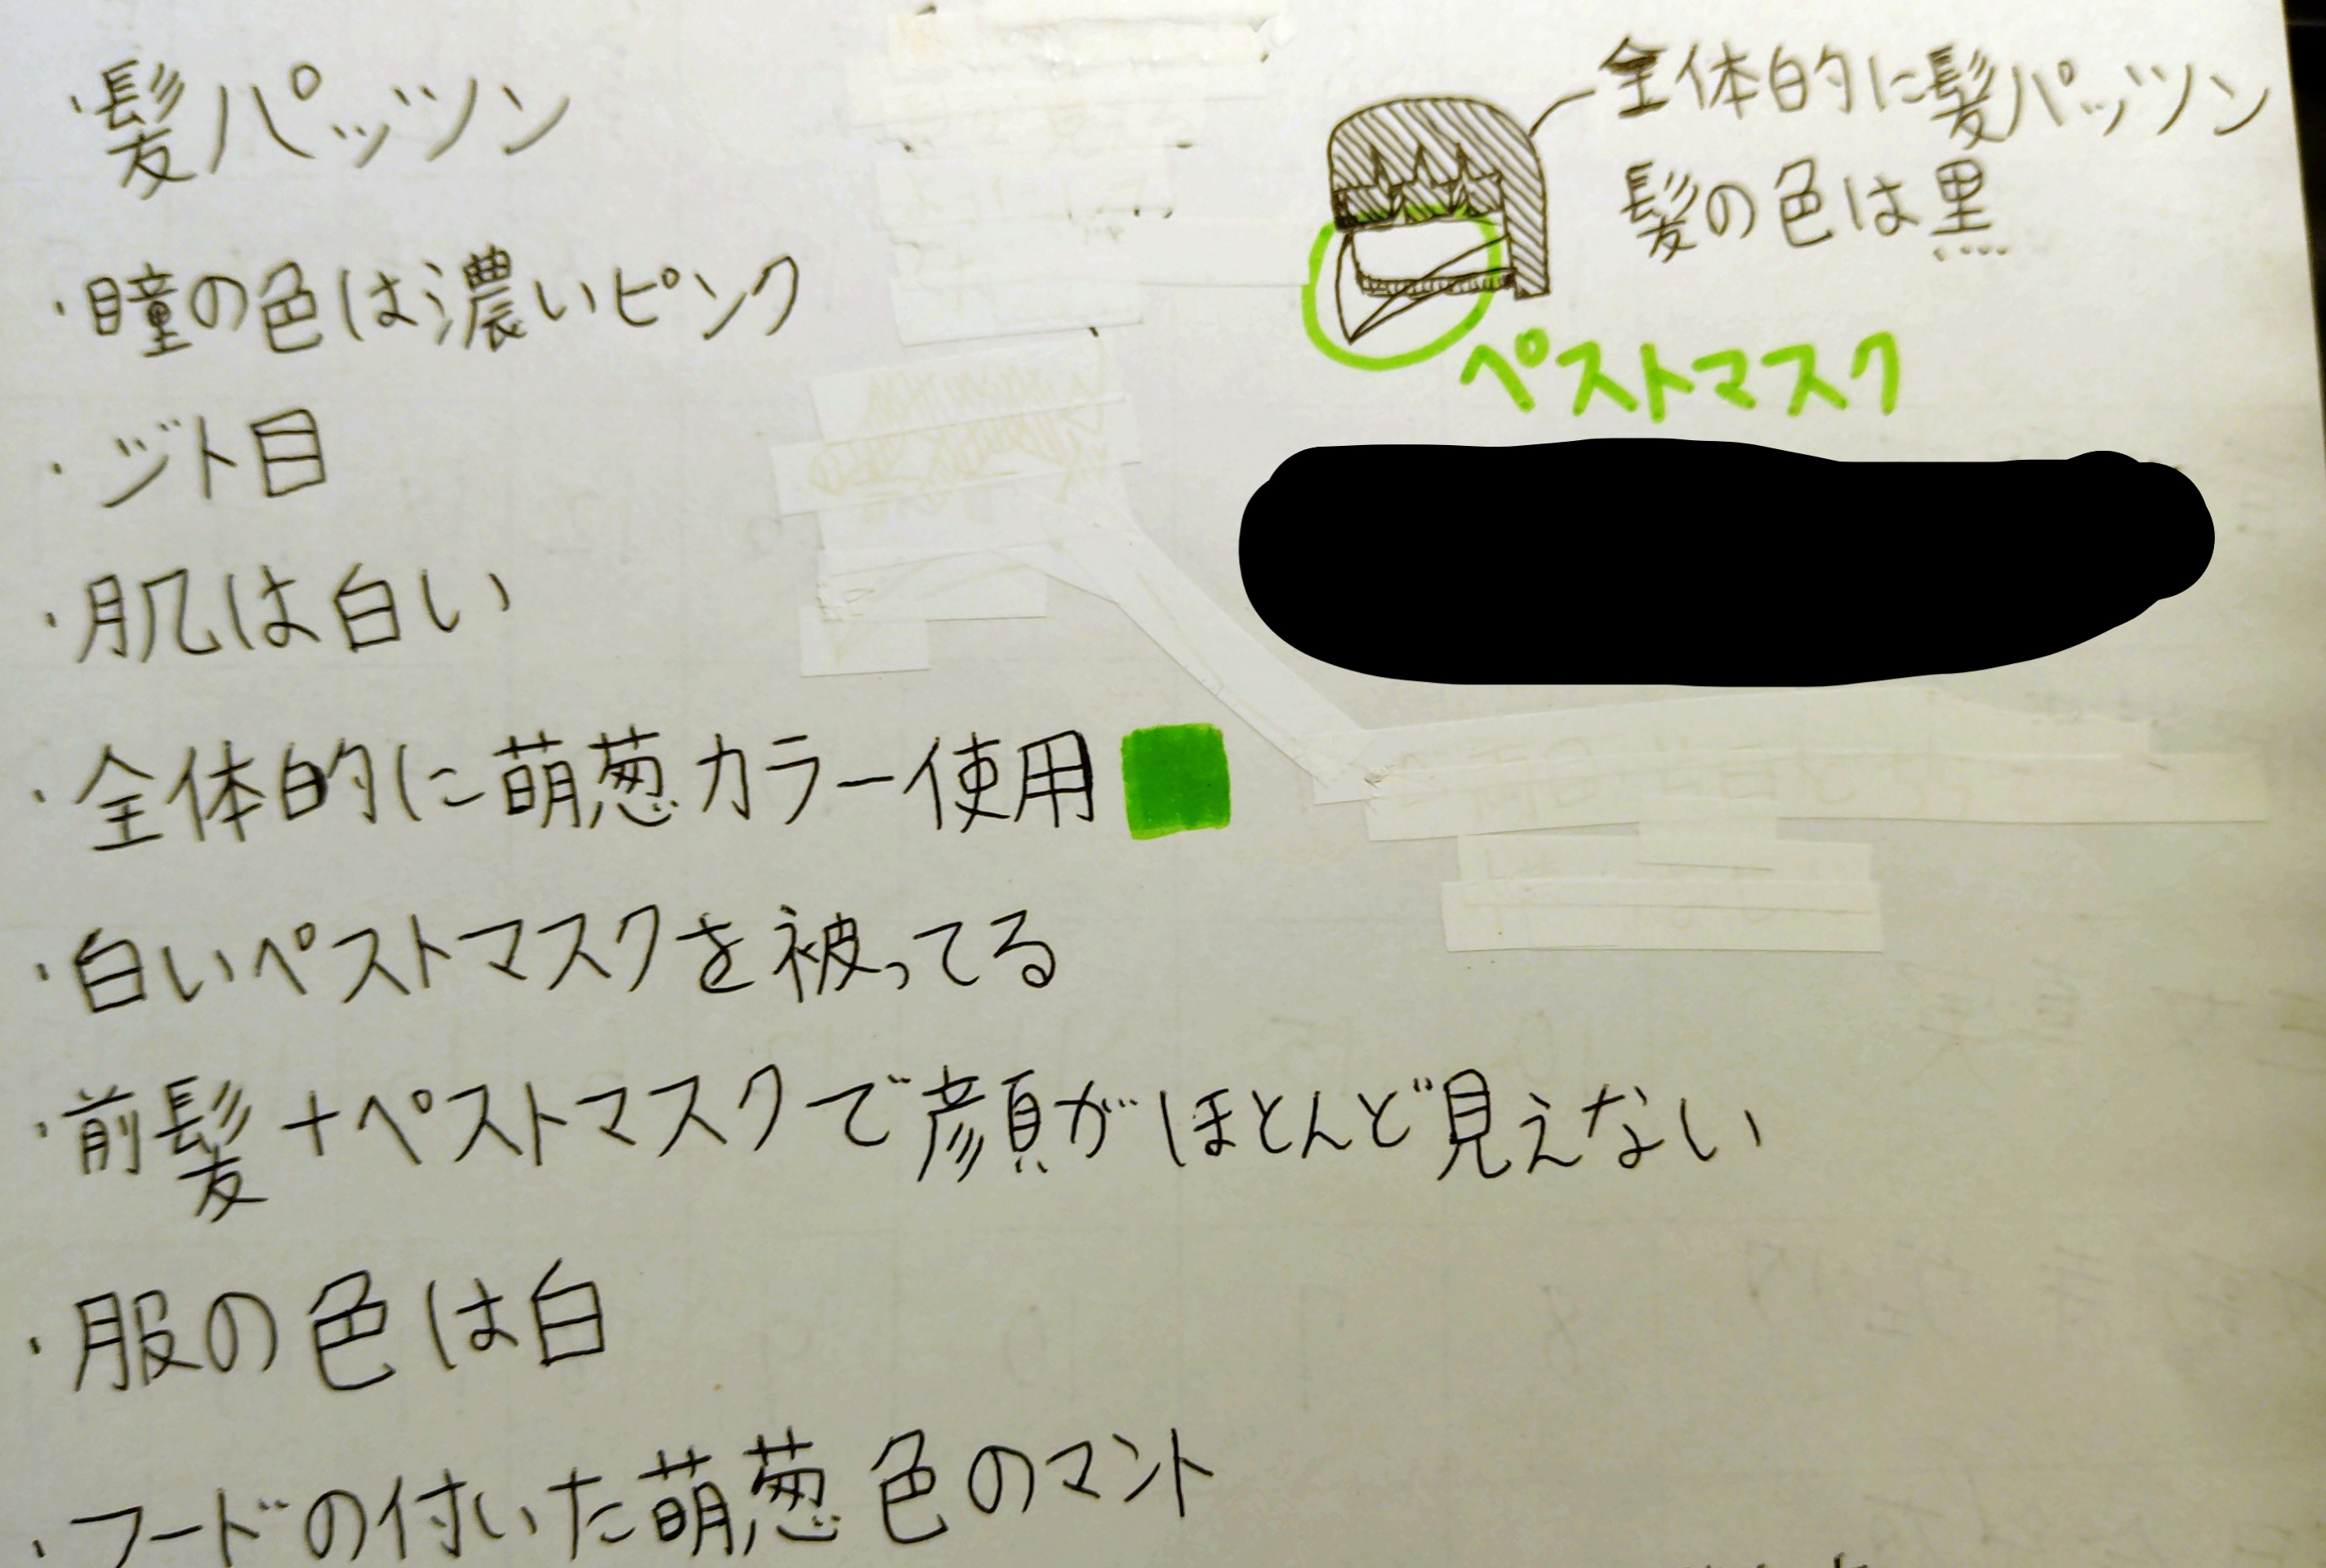 ・髪パッツン
・瞳の色は濃いピンク
・ジト目
・肌は白い
・全体的に萌葱カラー使用
・白いペストマスクを被ってる
・前髪+ペストマスクで顔がほとんど見えない
・服の色は白
・フードの付いた萌葱色のマント
全体的に髪パッツン
髪の色は黒
ペストマスク